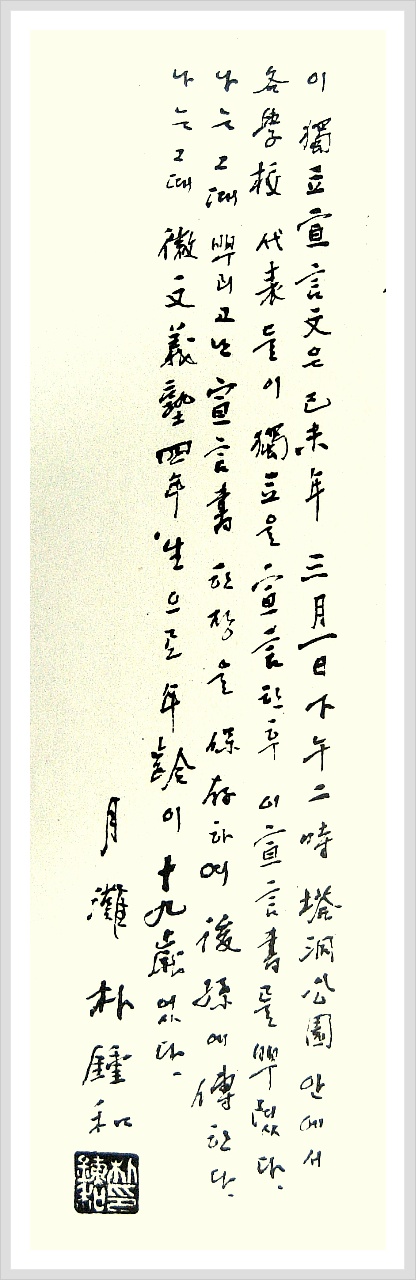 이 獨立宣言文은 己未年 三月一日 下午二時 塔洞公園 안에서
各學校 代表들이 獨立을 宣言한 후 이 宣言書를 뿌렸다.
나는 그 때 뿌리고 난 宣言書 한 장을 保存하여 後孫에 傳한다.
나는 그 때 徽文義塾 四年生으로 年齡이 十九歲였다.
月灘 朴鍾和
朴鍾和印